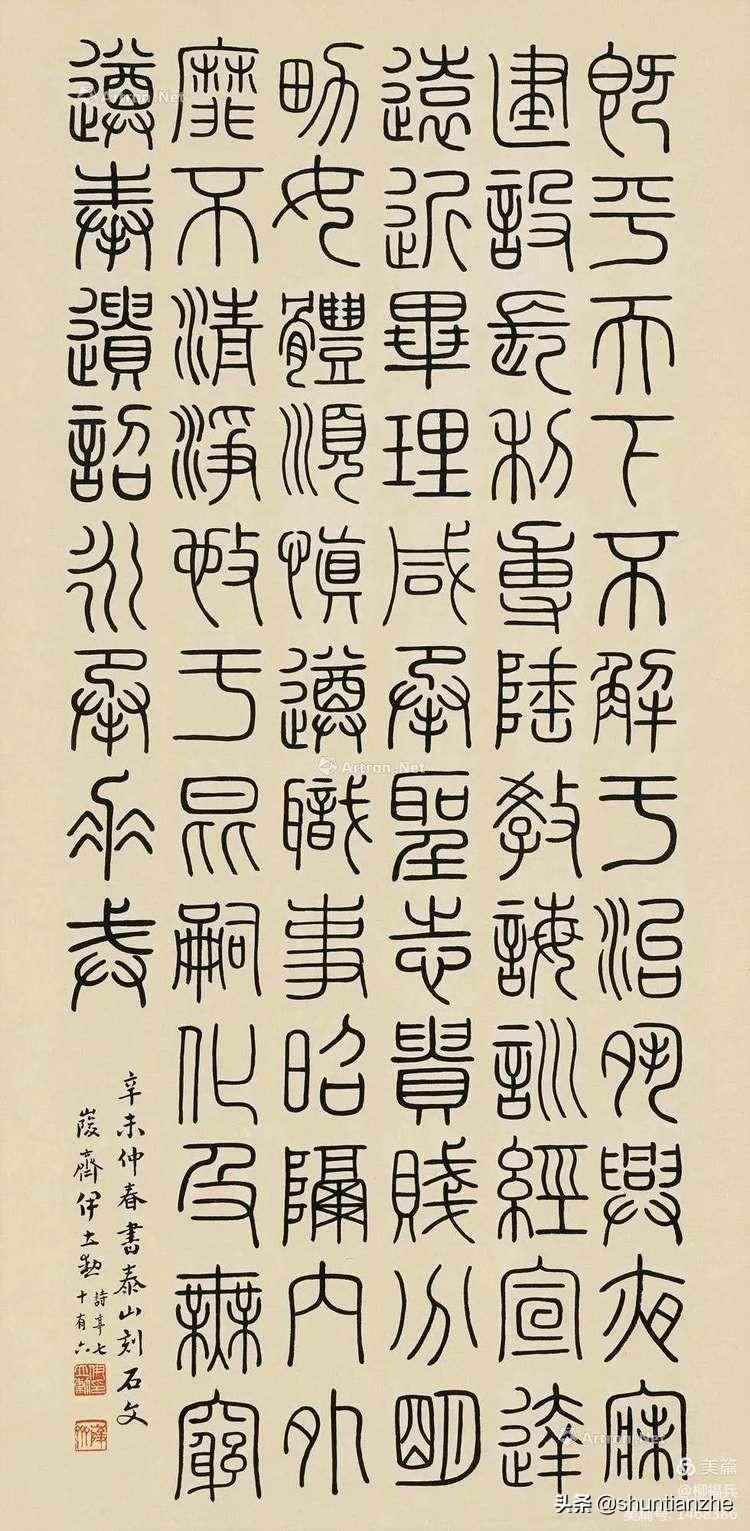 既平天下不解于治夙興夜寐
建設長利專隆教誨訓經宣達
遠近畢理咸承聖志貴賤分明
男女體順慎遵職事昭隔內外
靡不清淨施于昆嗣化及無窮
遵奉遺詔永承垂戒
辛未仲春書泰山刻石文
峻齋伊立勳時年七
十有六
Artron.Net
Artron.Net
Artron.Net
美篇
@柳福兵
头条 @shuntianzhe